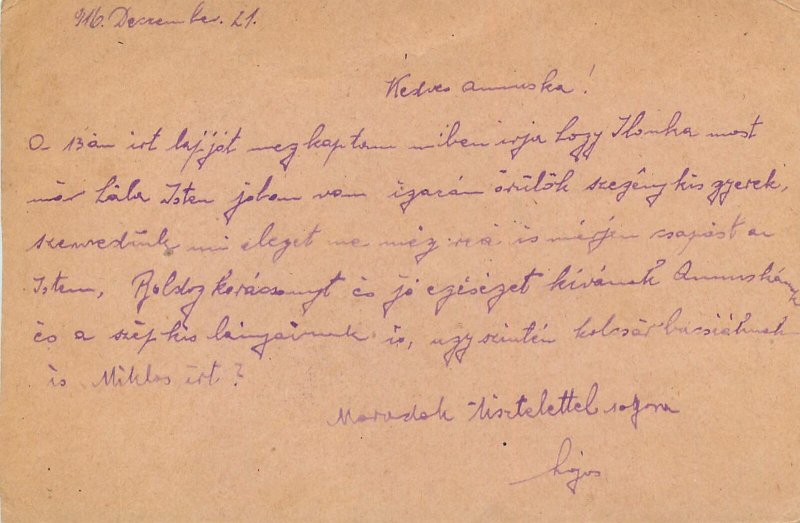 916. Deszember. 21.
Kedves Annuska!
A 13 án írt lapját megkaptam miben irja hogy Ilonka most
már hála Isten joban van igazán örülök szegény kis gyerek,
szenvedünk mi eleget ne még reá is mérjen csapást az
Isten, Boldog karácsonyt és jó egéségét kívánok Annuskának
és a szép kis lányainak is, ugyszintén bácsiéknak
is Miklos írt?
Maradok tisztelettel sogora
Lajos